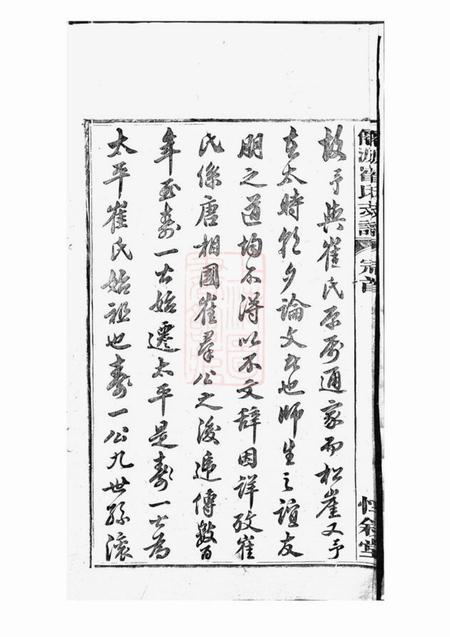 故予與崔氏原屬通家而松崖又予
在太時朝夕論文者也師生之誼友
朋之道均不得以不文辭因詳攷崔
氏係唐相國崔羣公之後遞傳數百
年至壽一公始遷太平是壽一公為
太平崔氏始祖也壽一公九世孫滾
崔氏支譜
宗首
惇敘堂